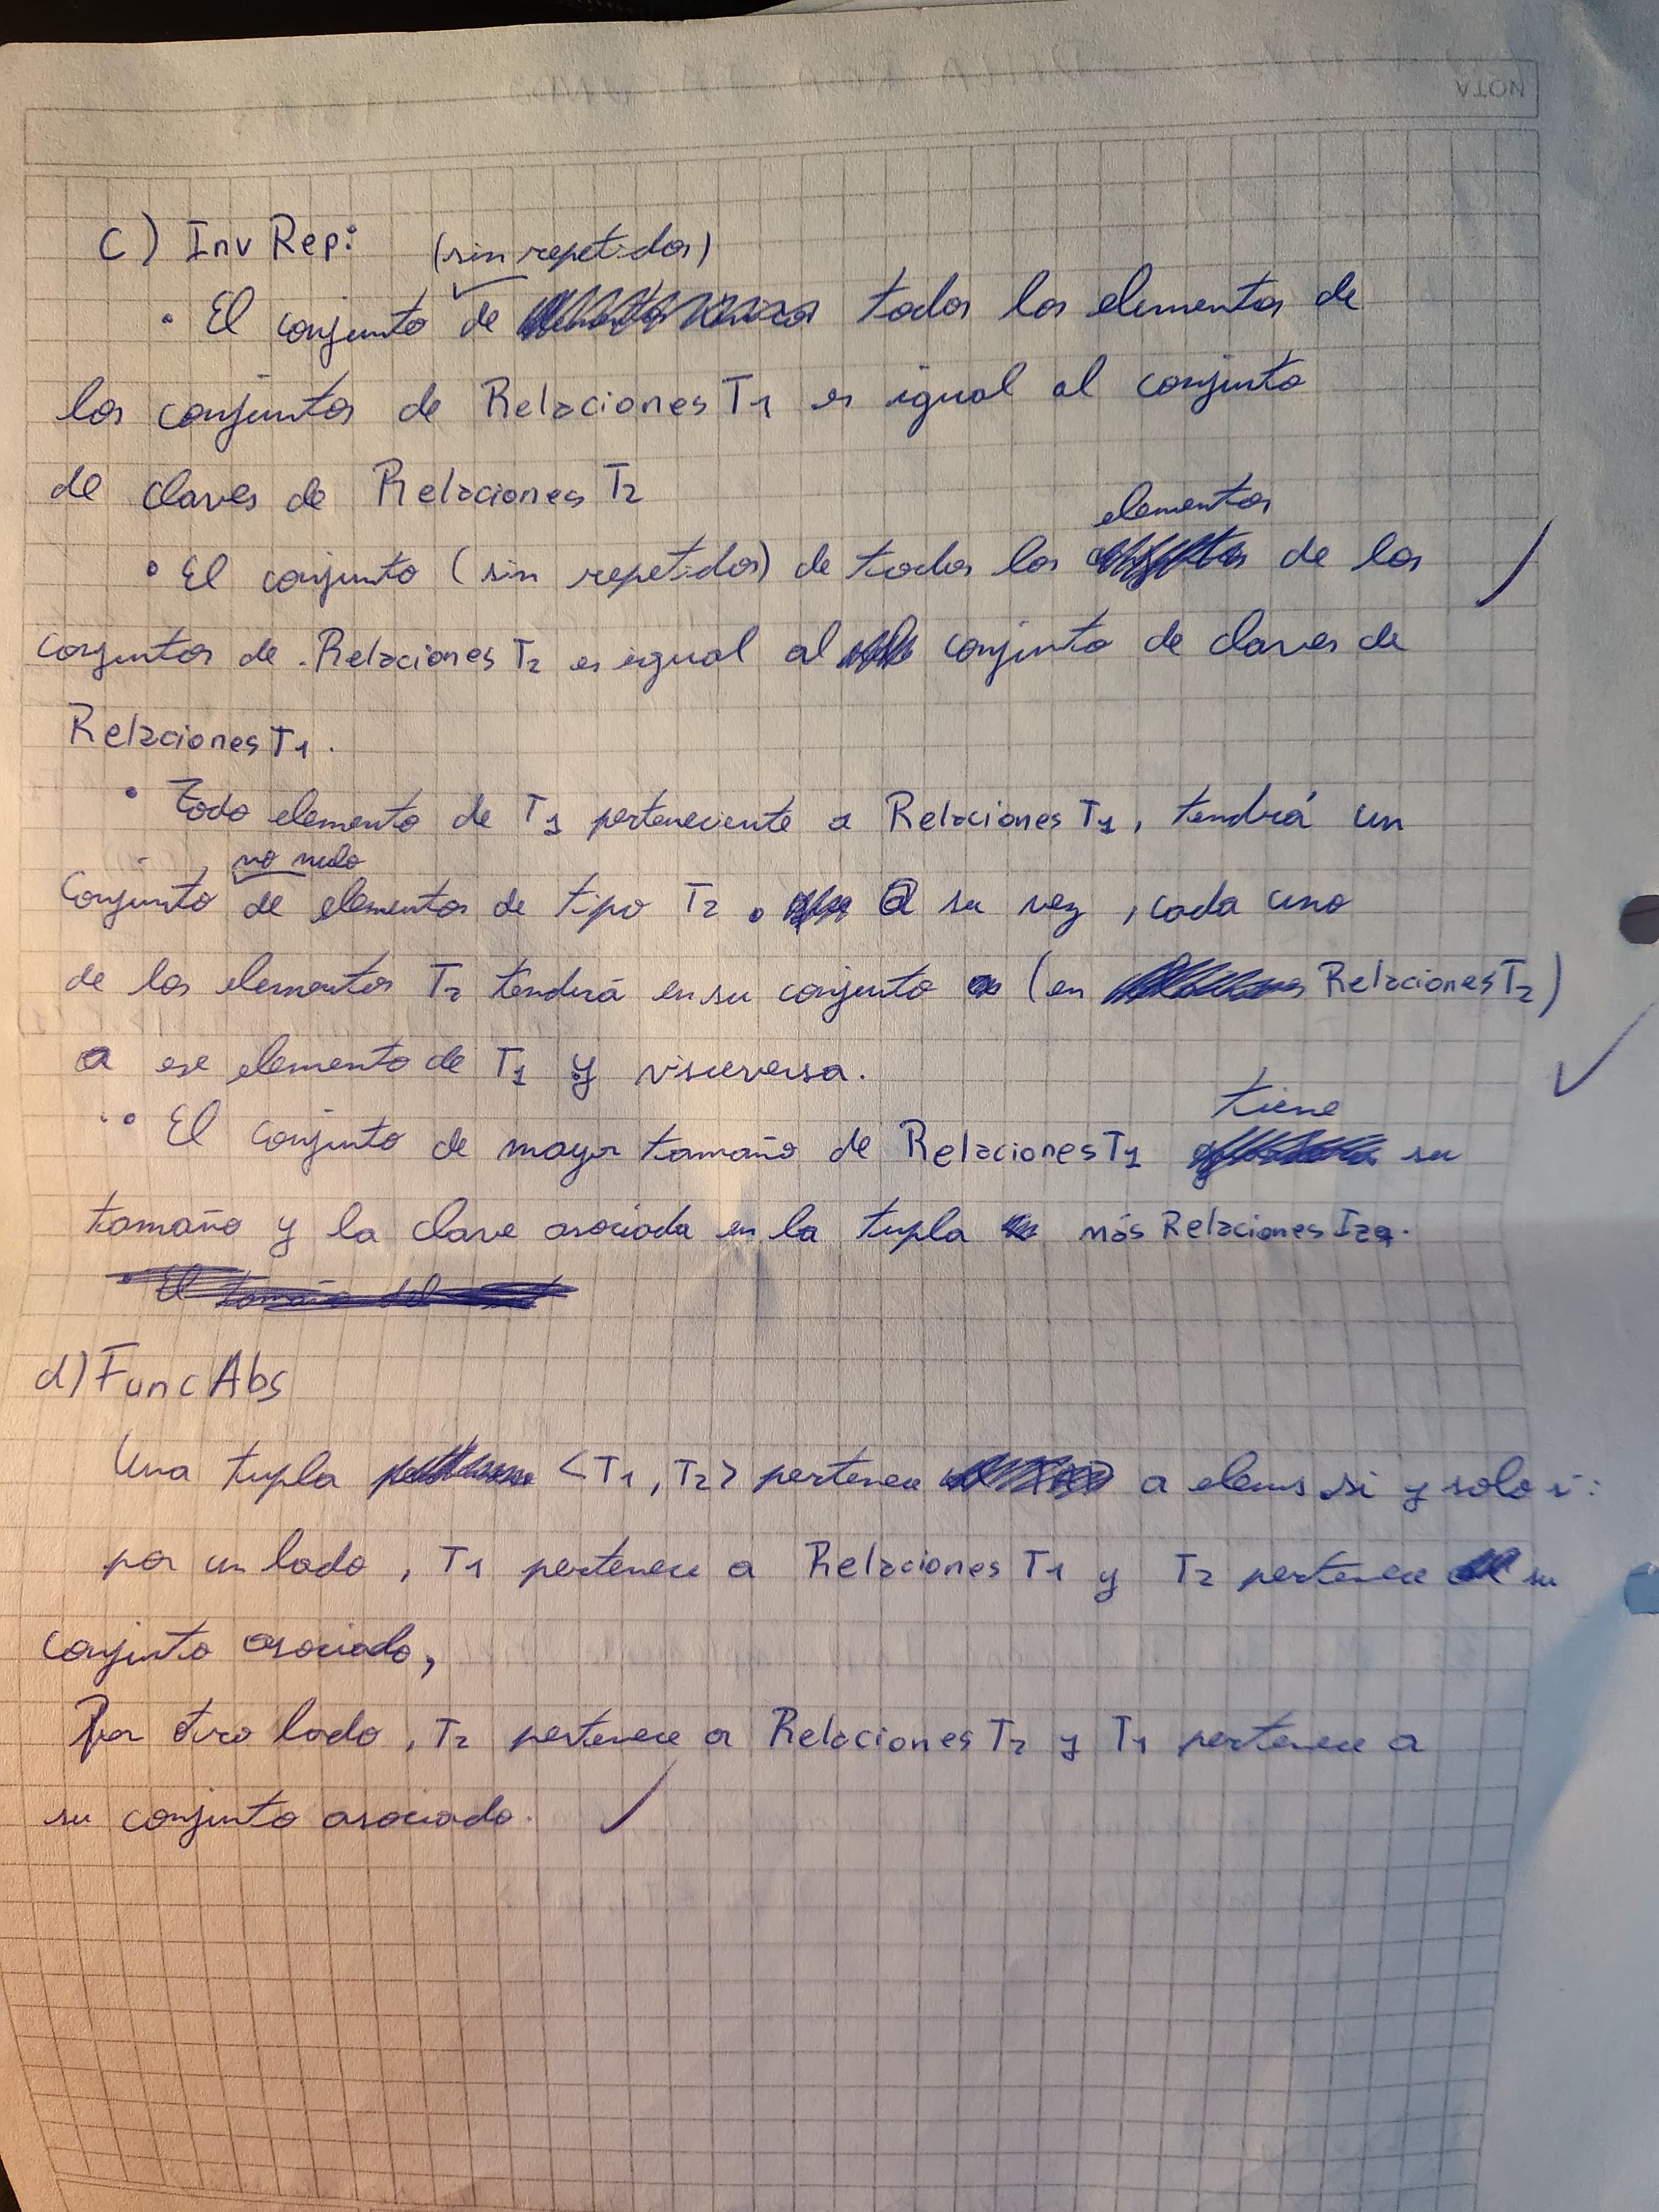 NOTA
C) InvRep:
(sin repetidos)
• El conjunto de todos los elementos de
los conjuntos de RelacionesT1 es igual al conjunto
de claves de RelacionesT2
elementos
• El conjunto (sin repetidos) de todos los de los
conjuntos de RelacionesT2 es igual al conjunto de claves de
RelacionesT1.
• Todo elemento de T1 perteneciente a RelacionesT1, tendrá un
no nulo
conjunto de elementos de tipo T2. A su vez, cada uno
de los elementos T2 tendrá en su conjunto (en RelacionesT2)
a ese elemento de T1 y visceversa.
• El conjunto de mayor tamaño de RelacionesT1
tiene
su
tamaño y la clave asociada en la tupla más Relaciones
d) FuncAbs
Una tupla <T1, T2> pertenece a elems si y solo si:
por un lado, T1 pertenece a RelacionesT1 y T2 pertenece su
conjunto asociado,
Por otro lado, T2 pertenece a RelacionesT2 y T1 pertenece a
su conjunto asociado.